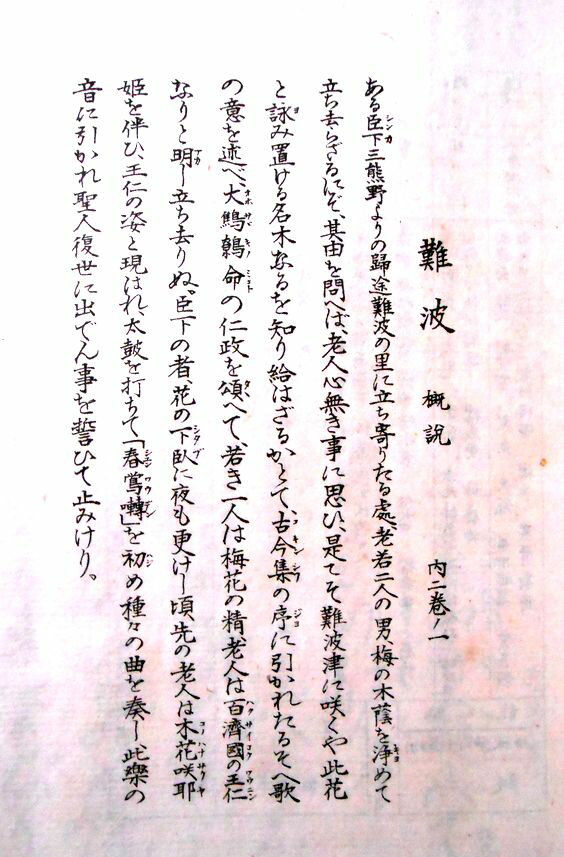 難波 概説 内二巻ノ一
ある臣下三熊野よりの歸途難波の里に立ち寄りたる處、老若二人の男、梅の木蔭を浄めて
立ち去らざるにぞ、其由を問へば、老人心無き事に思ひ、是てそ難波津に咲くや此花
と詠み置ける名木なるを知り給はざるかとて、古今集の序に引かれたるそへ歌
の意を述べ、大鷦鷯命の仁政を頌へて、若き一人は梅花の精、老人は百濟國の王仁
なりと明し立ち去りぬ。臣下の者、花の下臥に夜も更けし頃、先の老人は木花咲耶
姫を伴ひ、王仁の姿と現はれ、太鼓を打ちて「春鶯囀」を初め種々の曲を奏し、此樂の
音に引かれ聖人復世に出でん事を誓ひて止みけり。